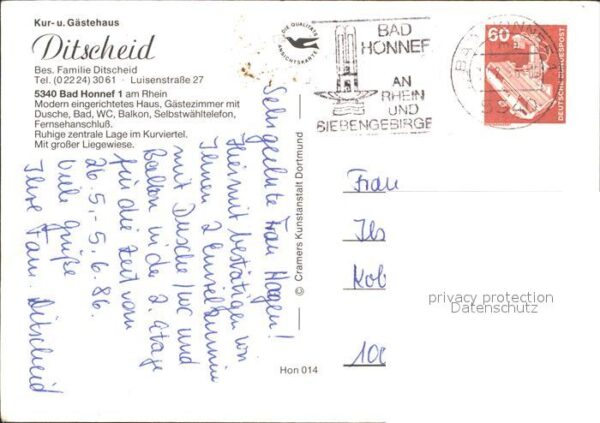 Kur- u. Gästehaus
Ditscheid
Bes. Familie Ditscheid
Tel. (02224) 3061 · Luisenstraße 27
5340 Bad Honnef 1 am Rhein
Modern eingerichtetes Haus, Gästezimmer mit
Dusche, Bad, WC, Balkon, Selbstwähltelefon,
Fernsehanschluß.
Ruhige zentrale Lage im Kurviertel.
Mit großer Liegewiese.
Sehr geehrte Frau Hagen!
Hiermit bestätigen wir
Ihnen 2 Einzelzimmer
mit Dusche/WC und
Balkon in der 2. Etage
für die Zeit vom
26.5.-5.6.86.
Viele Grüße
Ihre Fam. Ditscheid
© Cramers Kunstanstalt Dortmund
Hon 014
DIE QUALITÄTS
ANSICHTSKARTE
BAD
HONNEF
AN
RHEIN
UND
SIEBENGEBIRGE
BAD HONNEF 1
5340
60
DEUTSCHE BUNDESPOST
Frau
Ils
Kob
privacy protection
Datenschutz